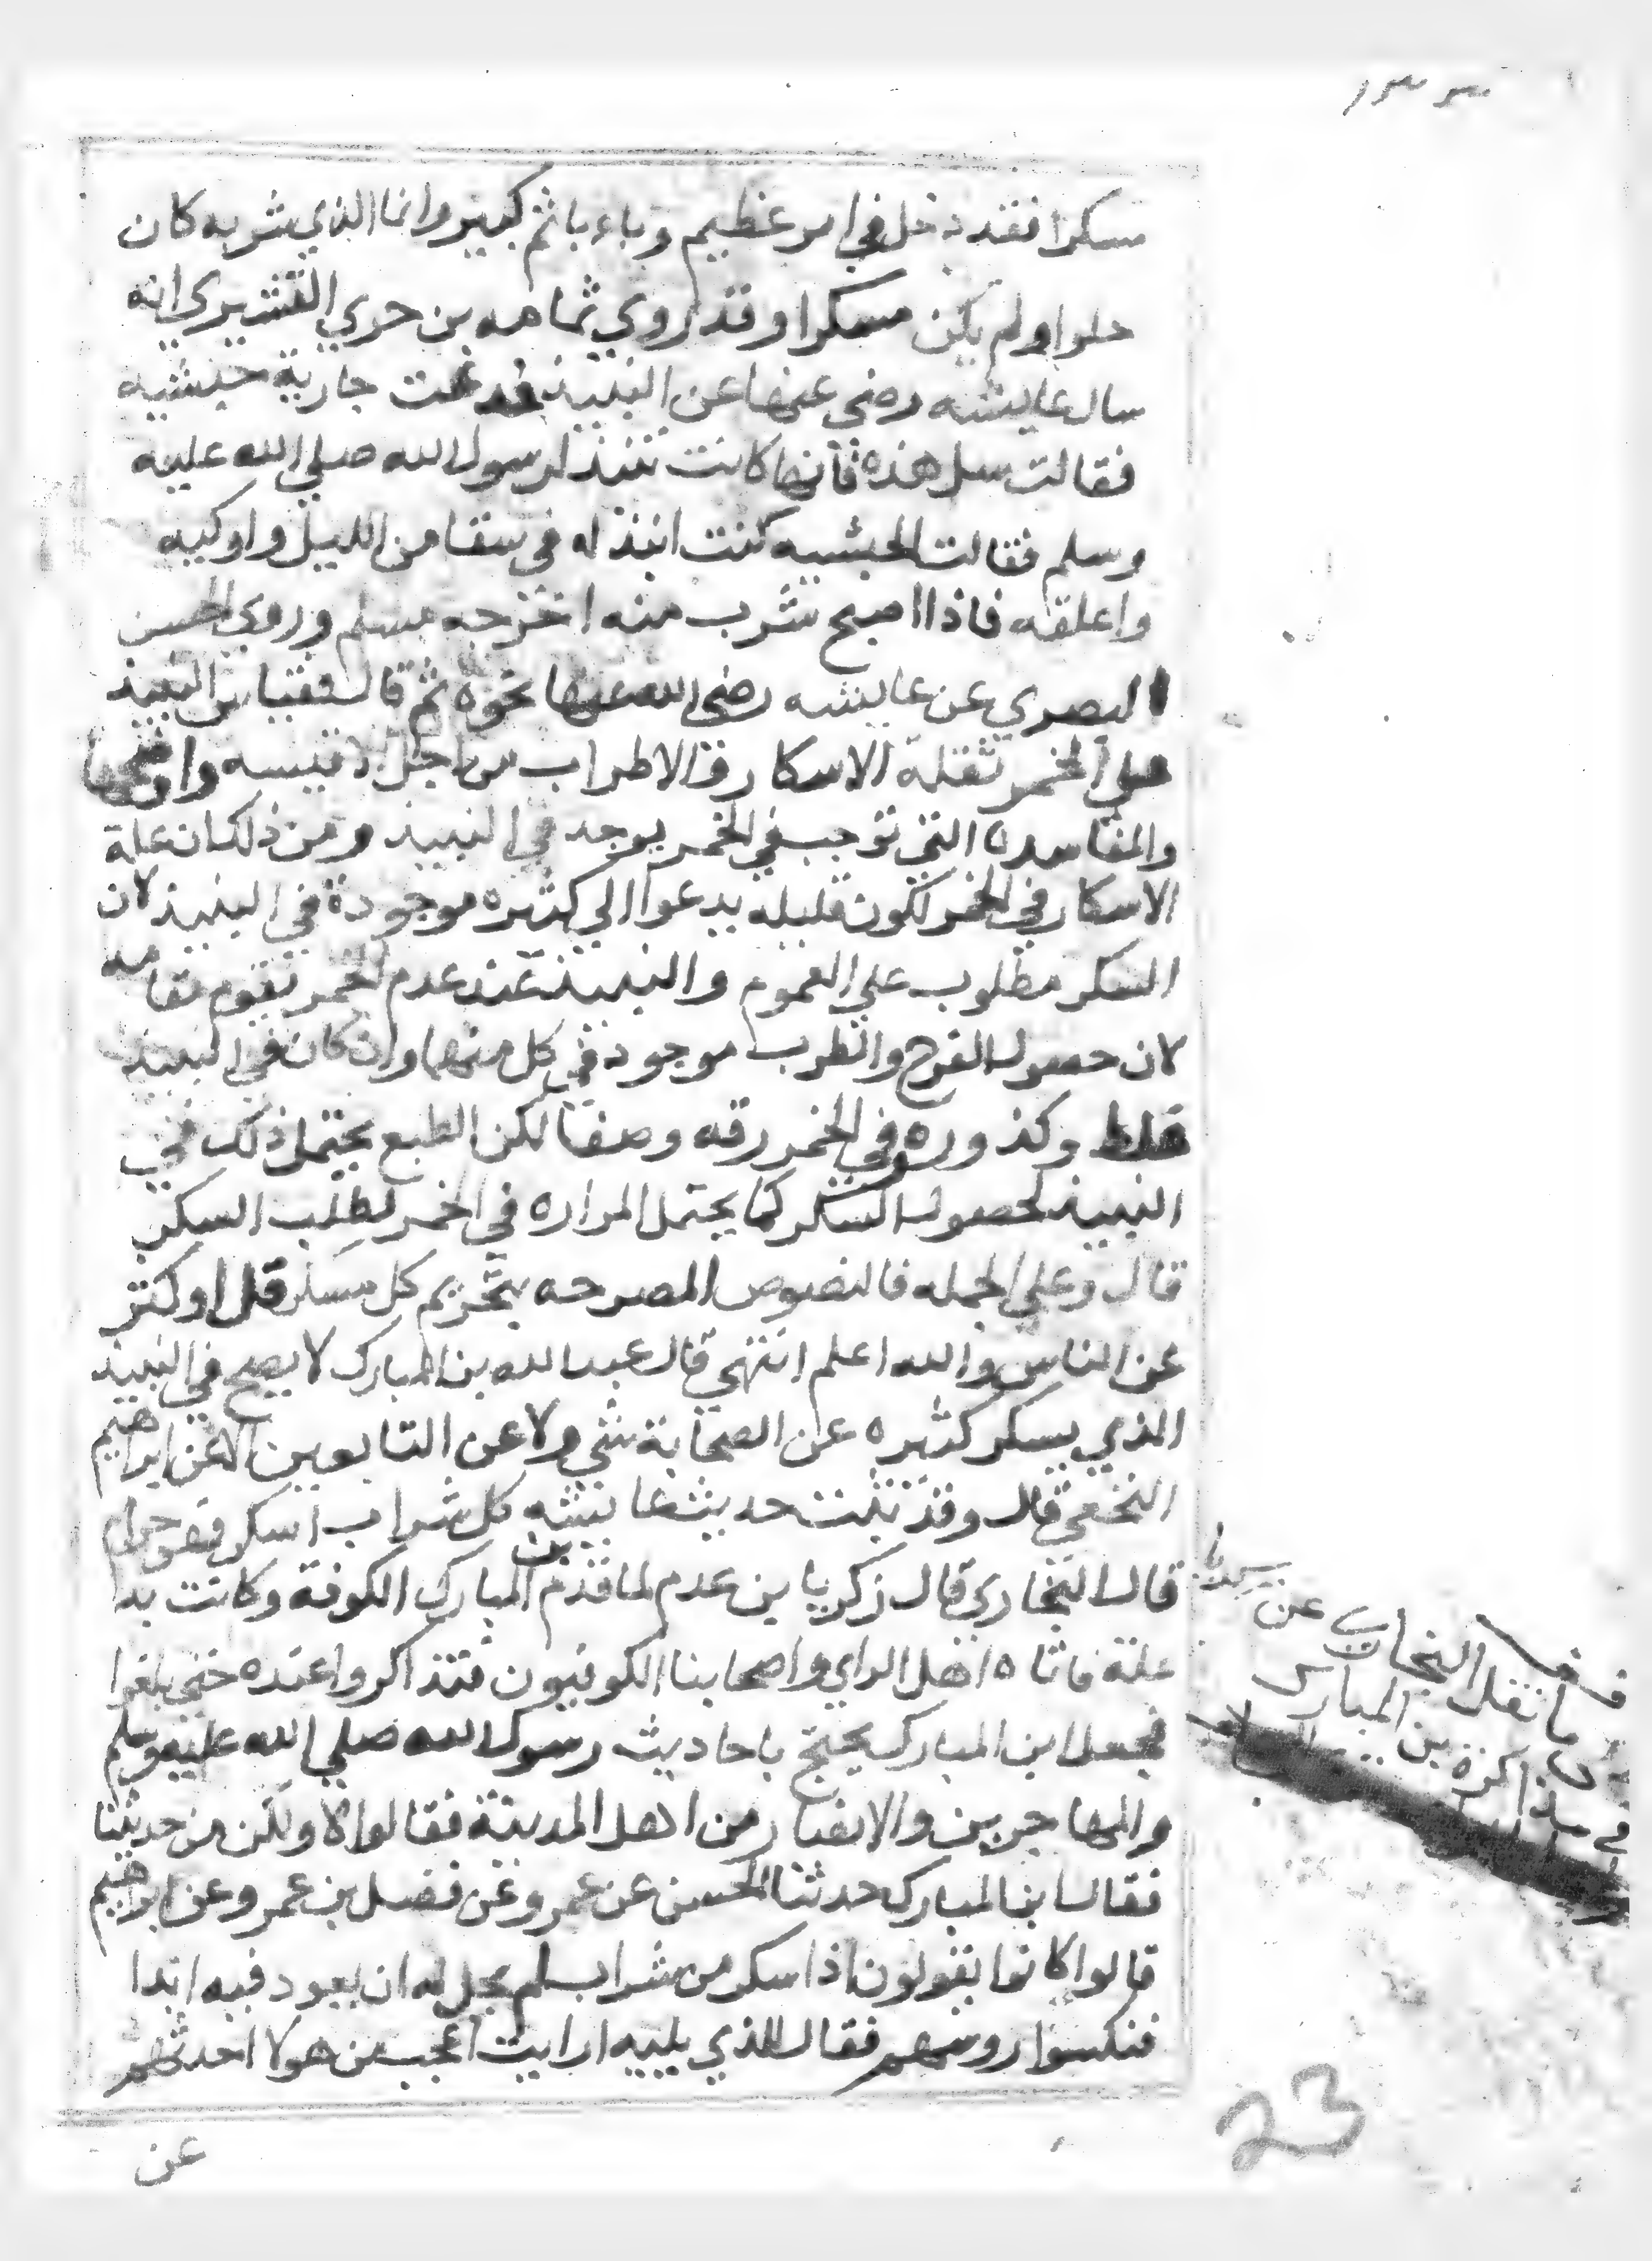 مسكرا فقد دخل في امر عظيم وباء باثم كبير وانما الذي شربه كان
حلوا ولم يكن مسكرا وقد روي ثمامه بن حزي القشيري انه
سال عايشه رضي عنها عن النبيذ فدعت جارية حبشيه
فقالت سل هذه فانها كانت تنبذ لرسول الله صلي الله عليه
وسلم فقالت الحبشيه كنت انبذ له في سقا من الليل واوكيه
واعلقه فاذا اصبح شرب منه اخرجه مسلم وروي الحسن
البصري عن عايشه رضي الله عنها نحوه ثم قال فقياس النبيذ
علي الخمر بعلة الاسكار والاطراب من اجل الاقيسه واوضحها
والمفاسده التي توجب في الخمر يوجد في النبيذ ومن ذلك ان علة
الاسكار في الخمر لكون قليله يدعوا الي كثيره موجودة في النبيذ لان
السكر مطلوب علي العموم والنبيذ عند عدم الخمر تقوم مقامه
لان حصول الفرح والطرب موجود في كل منهما وان كان في النبيذ
غلظ وكذوره وفي الخمر رقه وصفا لكن الطبع يحتمل ذلك في
النبيذ لحصول السكر كما يحتمل المراره في الخمر لطلب السكر
قال وعلي الجمله فالنصوص المصرحه بتحريم كل مسكر قل او كثر
عن الناس والله اعلم انتهي قال عبد الله بن المبارك لا يصح في النبيذ
الذي يسكر كثيره عن الصحابة شي ولا عن التابعين الا عن ابراهيم
النخعي قال وقد ثبت حديث عايشه كل شراب اسكر فهو حرام
قال البخاري قال زكريا بن عدم لما قدم بن المبارك الكوفة وكانت بدا
علة فاتاه اهل الراي واصحابنا الكوفيون فتذاكروا عنده حتي بلغوا
فجعل ابن المبارك يحتج باحاديث رسول الله صلي الله عليه وسلم
والمهاجرين والانصار من اهل المدينة فقالوا لا ولكن من حديثنا
فقال ابن المبارك حدثنا الحسن عن عمرو عن فضل بن عمرو عن ابراهيم
قالوا كانوا يقولون اذا سكر من شراب لم يحل له ان يعود فيه ابدا
فنكسوا روسهم فقال للذي يليه ارايت اعجب من هولا احدثهم
عن
ما نقل البخاري عن
بن المبارك
23